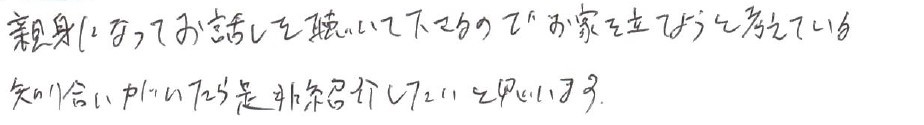 親身になってお話しを聴いて下さるのでお家を立てようと考えている
知り合いがいたら是非紹介したいと思います。